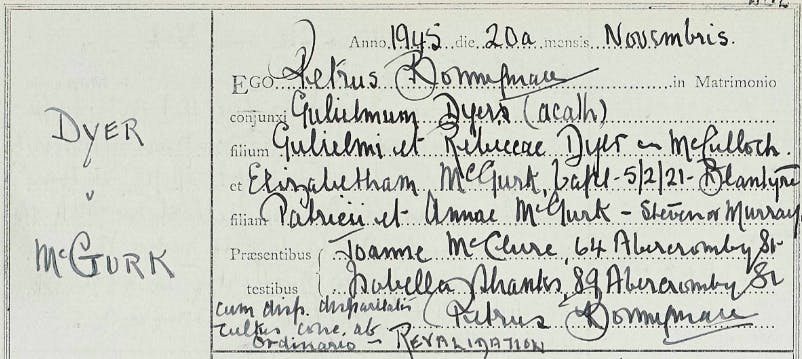 DYER
v
McGURK
Anno 1945 die 20a mensis Novembris.
EGO Petrus in Matrimonio
conjunxi Gulielmum Dyer (acath)
filium Gulielmi et Rebeccae Dyer - McCulloch.
et Elizabetham McGurk, bapt - 5/2/21 - Blantyre
filiam Patricii et Annae McGurk - Steven or Murray
Præsentibus Joanne McClure, 64 Abercromby St
testibus Isabella Shanks, 89 Abercromby St
cum disp. disparitatis Petrus
cultus conc. ab
Ordinario - REVALIDATION